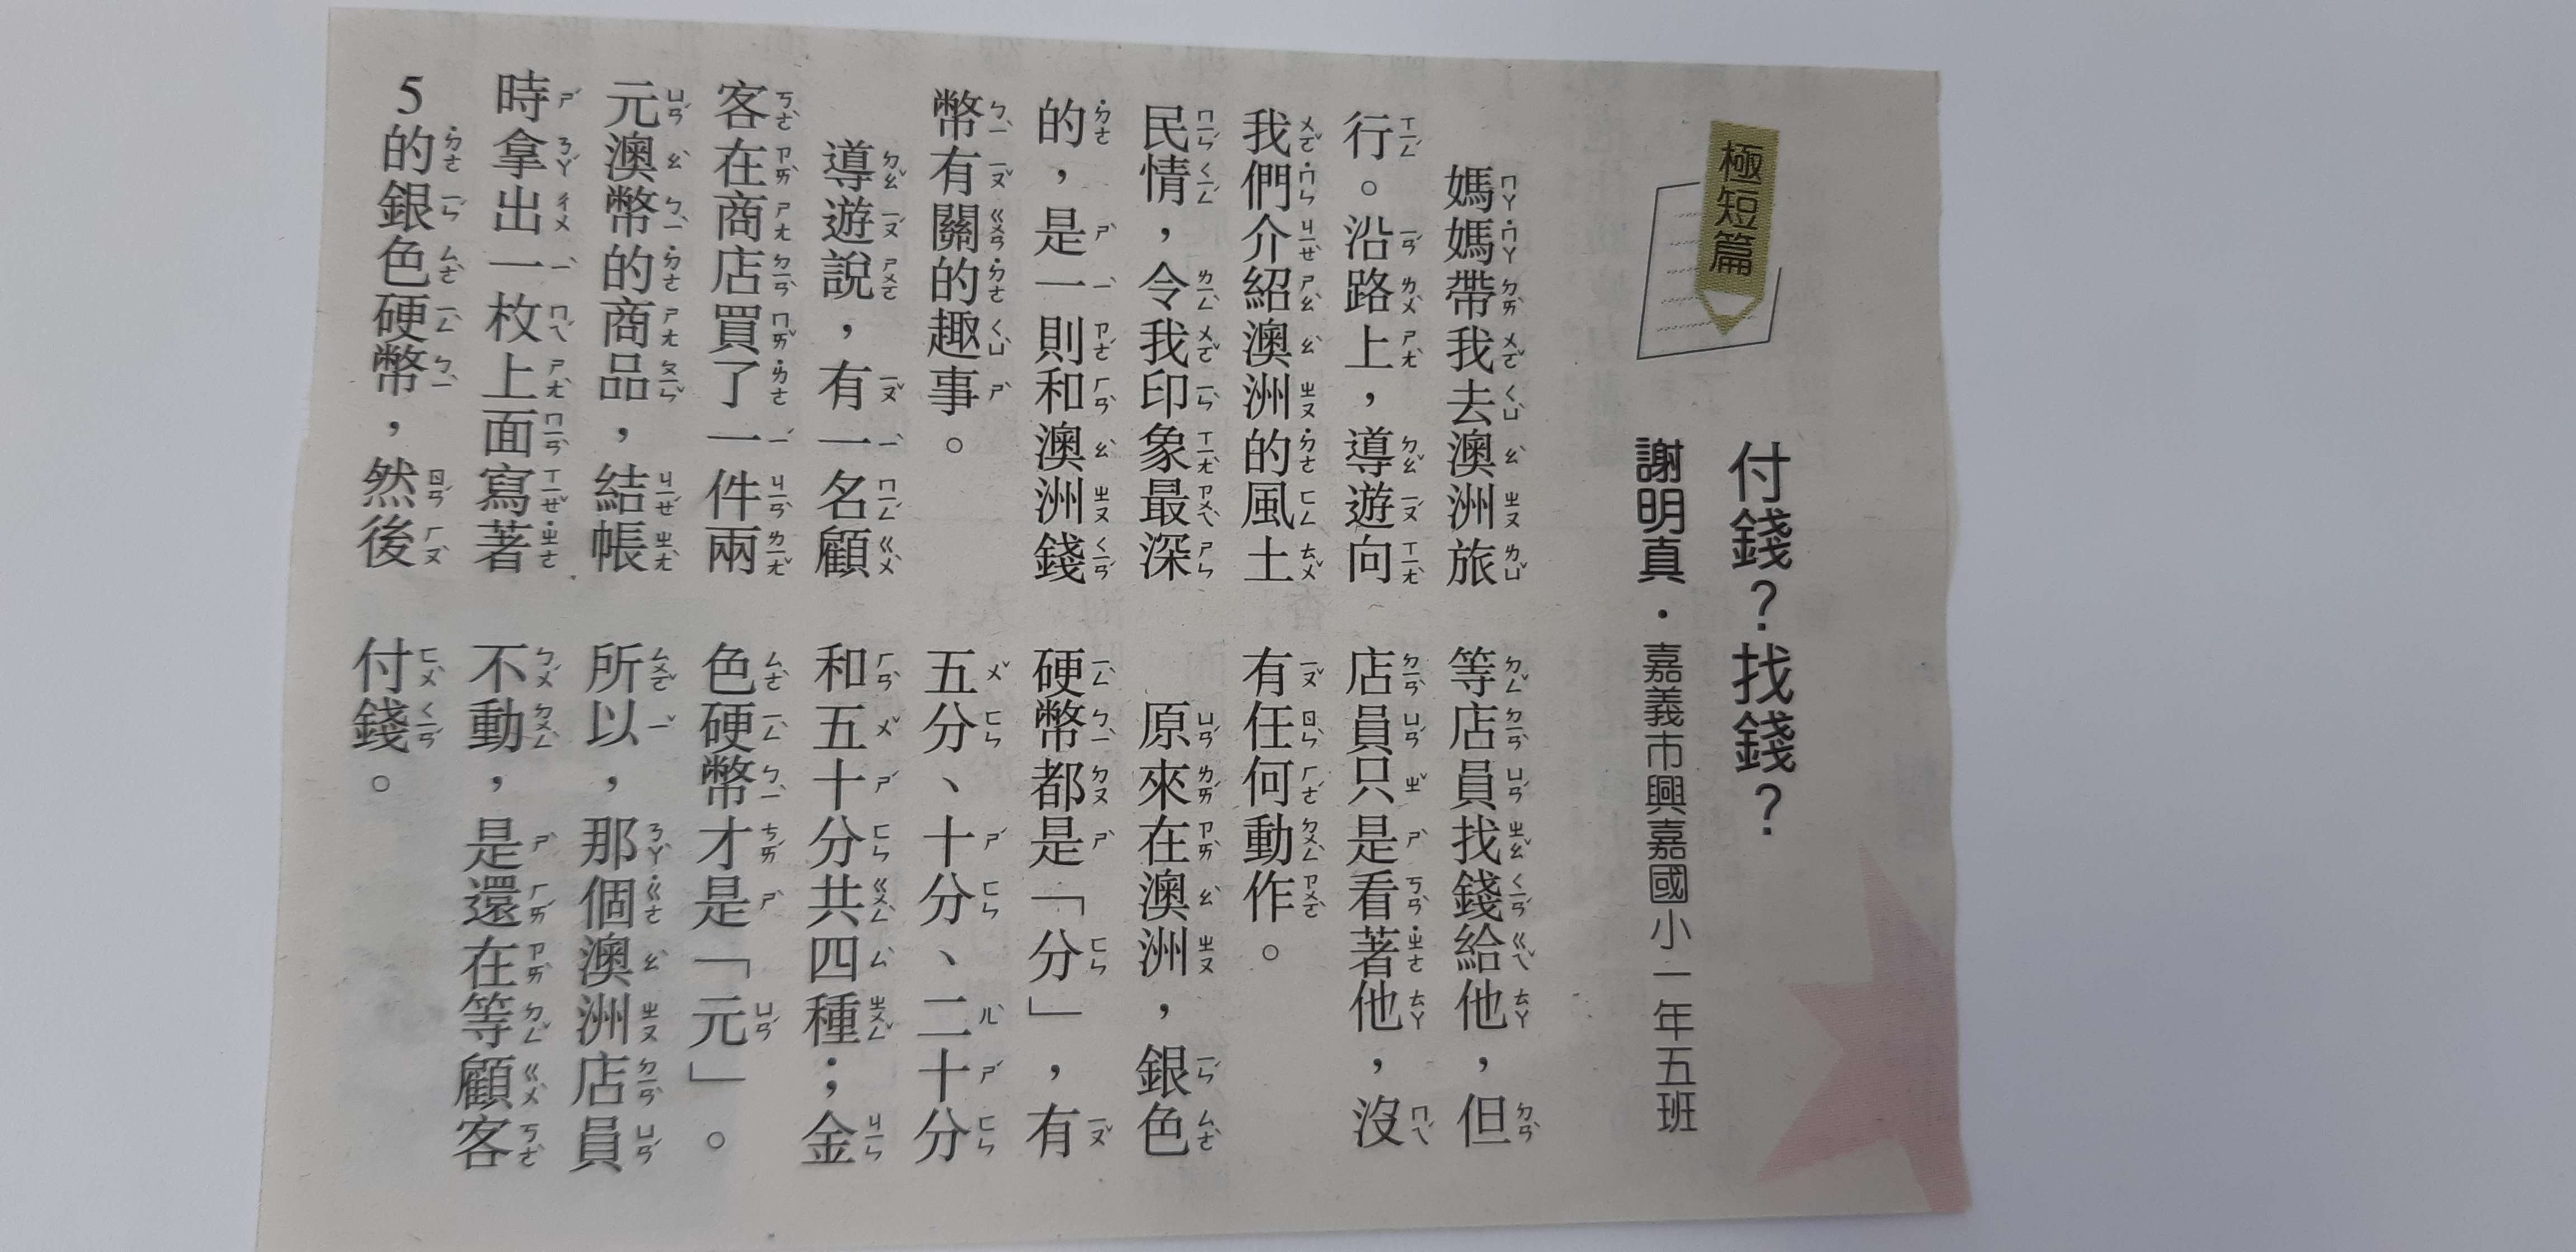 極短篇
付錢？找錢？
謝明真．嘉義市興嘉國小一年五班
媽媽帶我去澳洲旅
行。沿路上，導遊向
我們介紹澳洲的風土
民情，令我印象最深
的，是一則和澳洲錢
幣有關的趣事。
導遊說，有一名顧
客在商店買了一件兩
元澳幣的商品，結帳
時拿出一枚上面寫著
5的銀色硬幣，然後
等店員找錢給他，但
店員只是看著他，沒
有任何動作。
原來在澳洲，銀色
硬幣都是「分」，有
五分、十分、二十分
和五十分共四種；金
色硬幣才是「元」。
所以，那個澳洲店員
不動，是還在等顧客
付錢。